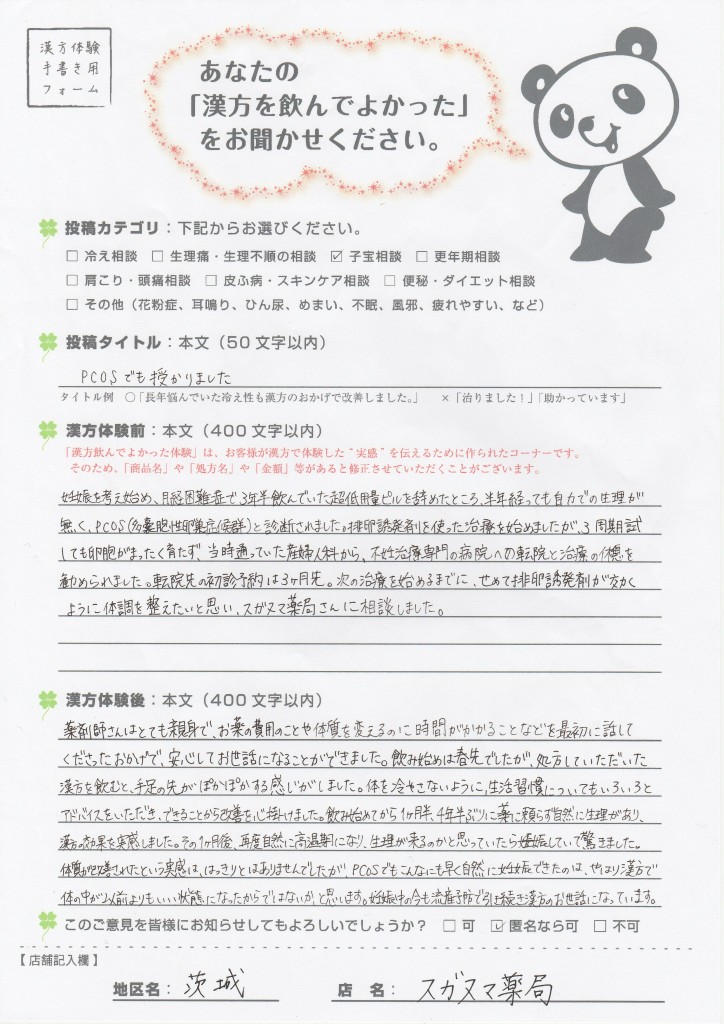 漢方体験
手書き用
フォーム
あなたの
「漢方を飲んでよかった」
をお聞かせください。
投稿カテゴリ：下記からお選びください。
□ 冷え相談 □ 生理痛・生理不順の相談 ☑ 子宝相談 □ 更年期相談
□ 肩こり・頭痛相談 □ 皮ふ病・スキンケア相談 □ 便秘・ダイエット相談
□ その他（花粉症、耳鳴り、ひん尿、めまい、不眠、風邪、疲れやすい、など）
投稿タイトル：本文（50文字以内）
PCOSでも授かりました
タイトル例 ○「長年悩んでいた冷え性も漢方のおかげで改善しました。」 ×「治りました！」「助かっています」
漢方体験前：本文（400文字以内）
「漢方飲んでよかった体験」は、お客様が漢方で体験した“実感”を伝えるために作られたコーナーです。
そのため、「商品名」や「処方名」や「金額」等があると修正させていただくことがございます。
妊娠を考え始め、月経困難症で3年半飲んでいた超低用量ピルを辞めたところ、半年経っても自力での生理が
無く、PCOS(多嚢胞性卵巣症候群)と診断されました。排卵誘発剤を使った治療を始めましたが、3周期試
しても卵胞がまったく育たず、当時通っていた産婦人科から、不妊治療専門の病院への転院と治療の休憩を
勧められました。転院先の初診予約は3ヶ月先。次の治療を始めるまでに、せめて排卵誘発剤が効く
ように体調を整えたいと思い、スガヌマ薬局さんに相談しました。
漢方体験後：本文（400文字以内）
薬剤師さんはとても親身で、お薬の費用のことや体質を変えるのに時間がかかることなどを最初に話して
くださったおかげで、安心してお世話になることができました。飲み始めは春先でしたが、処方していただいた
漢方を飲むと、手足の先がぽかぽかする感じがしました。体を冷やさないように、生活習慣についてもいろいろと
アドバイスをいただき、できることから改善を心掛けました。飲み始めてから1ヶ月半、4年半ぶりに薬に頼らず自然に生理があり、
漢方の効果を実感しました。その1ヶ月後、再度自然に高温期になり、生理が来るのかと思っていたら妊娠していて驚きました。
体質が改善されたという実感は、はっきりとはありませんでしたが、PCOSでもこんなにも早く自然に妊娠できたのは、やはり漢方で
体の中が以前よりもいい状態になったからではないかと思います。妊娠中の今も流産予防で引き続き漢方のお世話になっています。
このご意見を皆様にお知らせしてもよろしいでしょうか？ □ 可 ☑ 匿名なら可 □ 不可
【店舗記入欄】
地区名：茨城 店 名：スガヌマ薬局